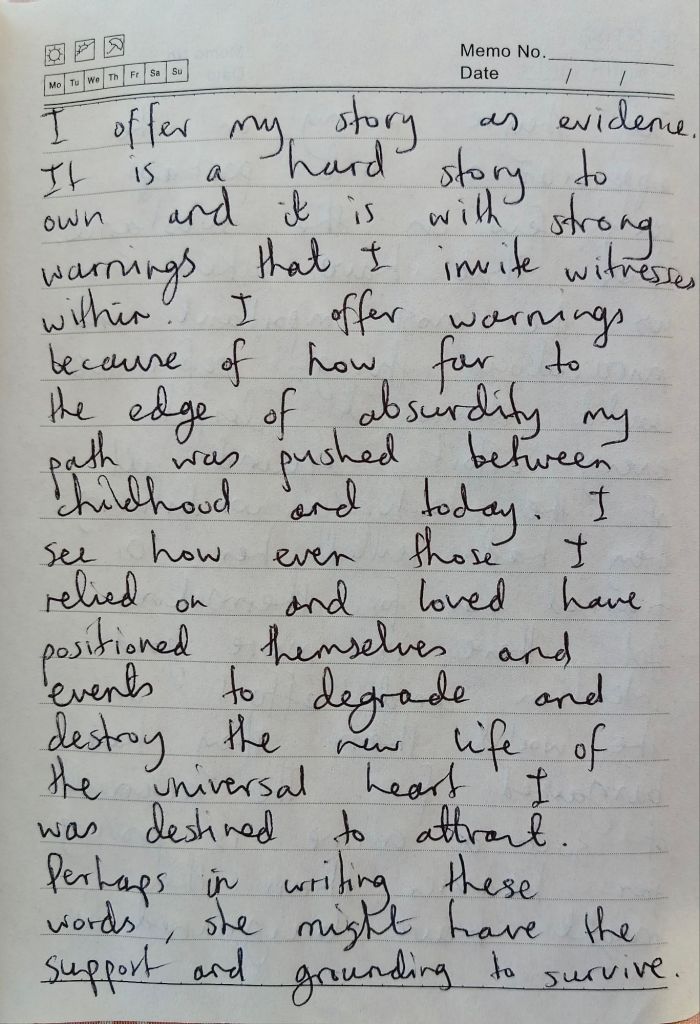 Memo No.
Mo Tu We Th Fr Sa Su
Date / /
I offer my story as evidence.
It is a hard story to
own and it is with strong
warnings that I invite witnesses
within. I offer warnings
because of how far to
the edge of absurdity my
path was pushed between
childhood and today. I
see how even those I
relied on and loved have
positioned themselves and
events to degrade and
destroy the new life of
the universal heart I
was destined to attract.
Perhaps in writing these
words, she might have the
support and grounding to survive.